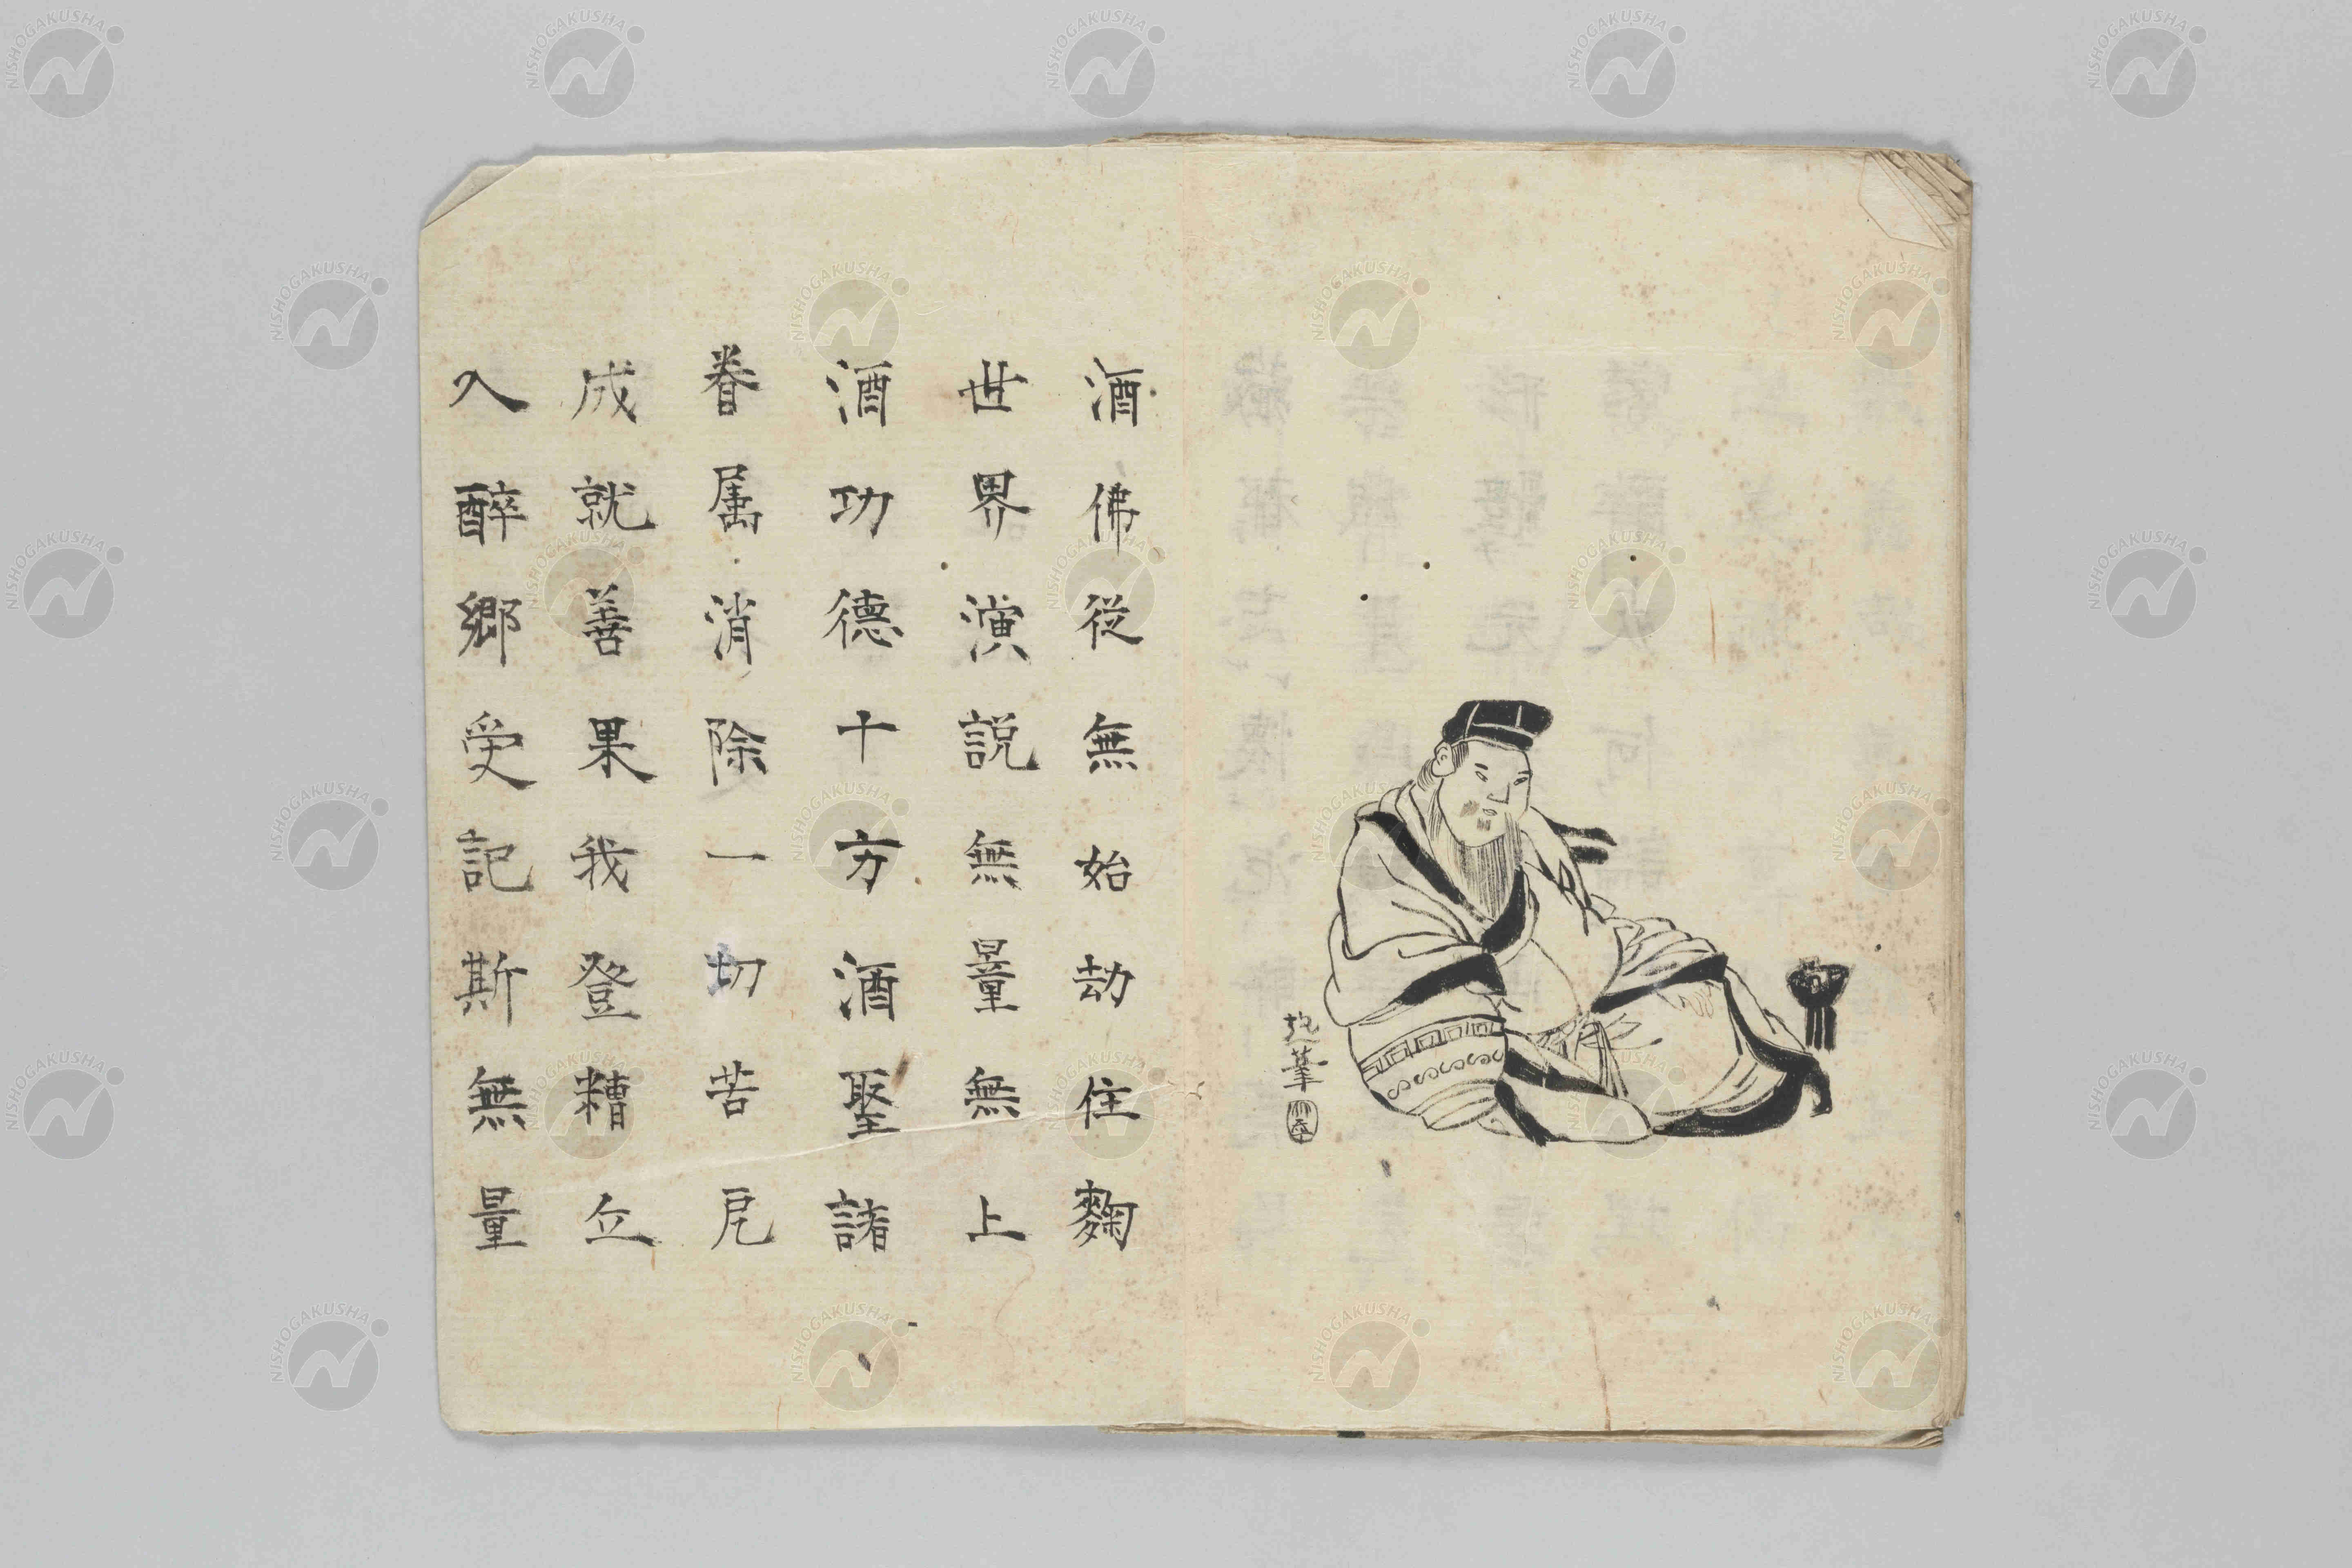 抱葦
酒佛從無始劫住麴
世界演説無量無上
酒功德十方酒聖諸
眷属消除一切苦戹
成就善果我登糟丘
入醉郷受記斯無量
NISHOGAKUSHA